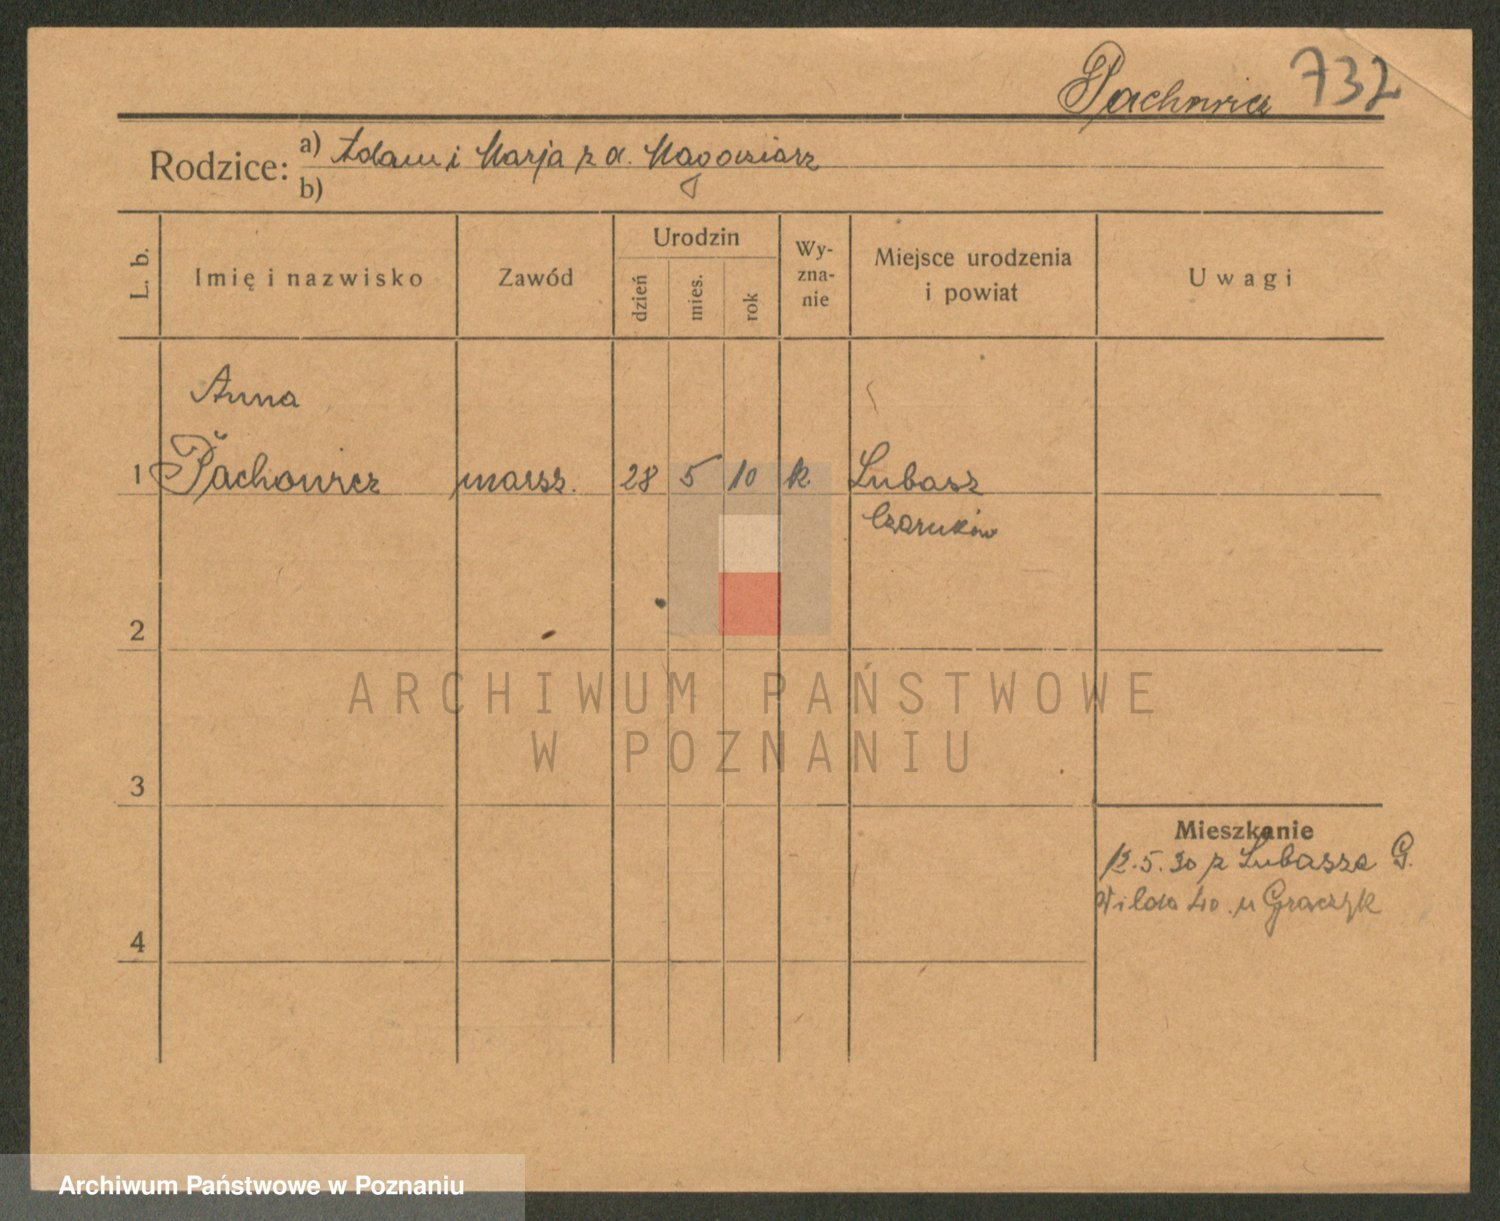 Pachowicz 732
Rodzice: a) Adam i Marja z d.
b)
L. b. Imię i nazwisko Zawód Urodzin dzień mies. rok Wy-zna-nie Miejsce urodzenia i powiat Uwagi
Anna
1 Pachowicz 28 5 10 k. Lubasz
Czarnków
2
ARCHIWUM PAŃSTWOWE
W POZNANIU
3
Mieszkanie
12.5.30 z Lubasza G.
Wilda 40. u Graczyk
4
Archiwum Państwowe w Poznaniu